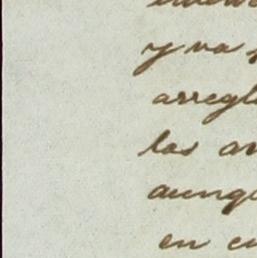 y va
arregl
las an
aunq
en cu